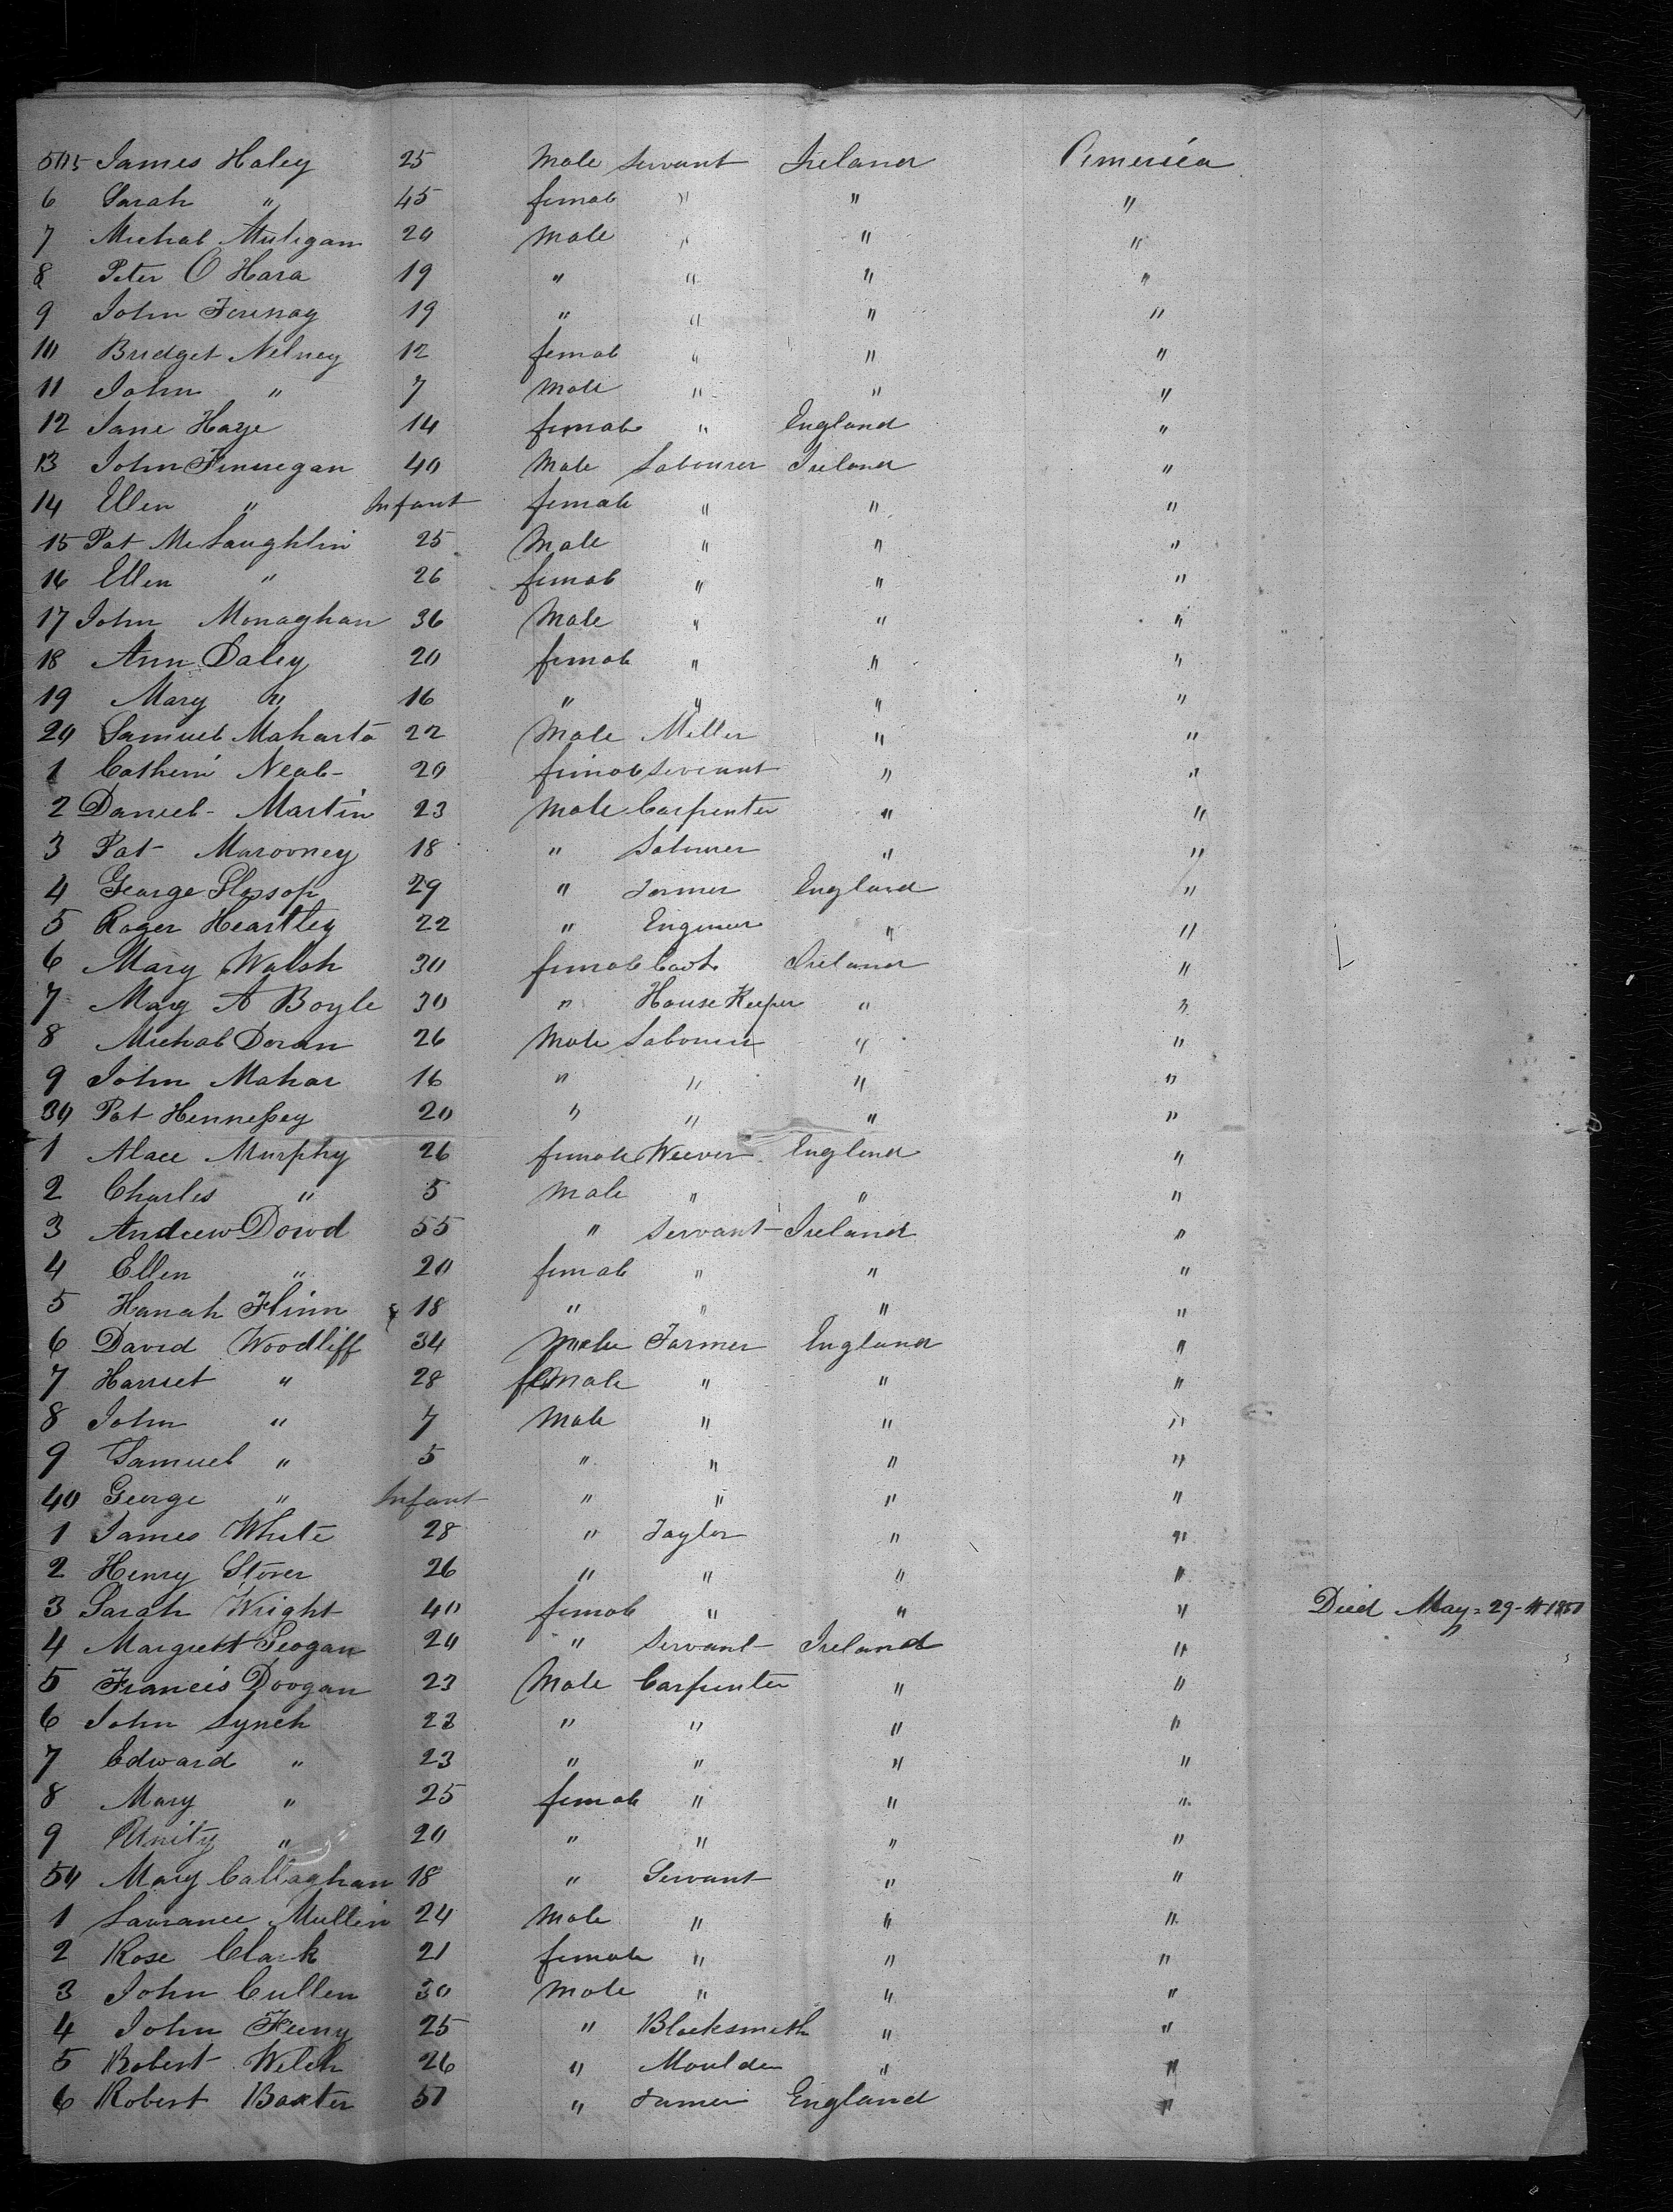 505 James Haley 25 Male Servant Ireland America
6 Sarah " 45 female " " "
7 Michal Muligan 20 Male " " "
8 Peter O Hara 19 " " " "
9 John 19 " " " "
10 Bridget Nelney 12 female " " "
11 John " 7 Male " " "
12 Jane Haye 14 female " England "
13 John Finnegan 40 Male Labourer Ireland "
14 Ellen " Infant female " " "
15 Pat McLaughlin 25 Male " " "
16 Ellen " 26 female " " "
17 John Monaghan 36 Male " " "
18 Ann Daley 20 female " " "
19 Mary " 16 " " " "
20 Samuel 22 Male Miller " "
1 Catheni Neal 20 female Servant " "
2 Daniel Martin 23 Male Carpenter " "
3 Pat Marooney 18 " Labourer " "
4 George Glossop 29 " Farmer England "
5 Roger Heartley 22 " Engineer " "
6 Mary Walsh 30 female Cook Ireland "
7 Mary A Boyle 30 " House Keeper " "
8 Michal Doran 26 Male Labourer " "
9 John Mahar 16 " " " "
30 Pat Hennessey 20 " " " "
1 Alace Murphy 26 female Weever England "
2 Charles " 5 Male " " "
3 Andrew Dowd 55 " Servant Ireland "
4 Ellen " 20 female " " "
5 Hanah Flinn 18 " " " "
6 David Woodliff 34 Male Farmer England "
7 Harriet " 28 female " " "
8 John " 7 Male " " "
9 Samuel " 5 " " " "
40 George " Infant " " " "
1 James White 28 " Taylor " "
2 Henry Stover 26 " " " "
3 Sarah Wright 40 female " " " Died May 29
4 Margrett 20 " Servant Ireland "
5 Francis Doogan 23 Male Carpenter " "
6 John Lynch 23 " " " "
7 Edward " 23 " " " "
8 Mary " 25 female " " "
9 Unity " 20 " " " "
50 Mary Callaghan 18 " Servant " "
1 Laurance Mullin 24 Male " " "
2 Rose Clark 21 female " " "
3 John Cullen 30 Male " " "
4 John Feeny 25 " Blacksmith " "
5 Robert Welch 26 " Moulder " "
6 Robert Baxter 51 " Farmer England "